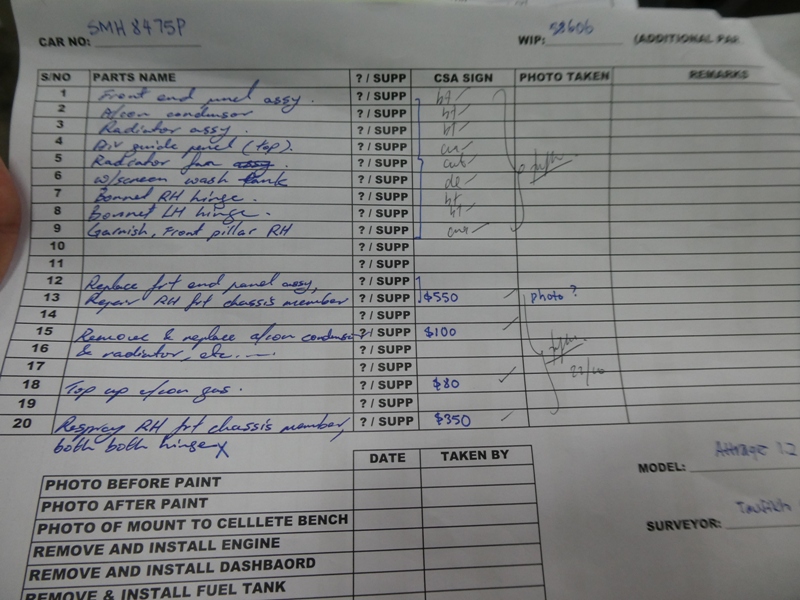 CAR NO: SMH 8475P WIP: 58606 (ADDITIONAL PAR
S/NO PARTS NAME ? / SUPP CSA SIGN PHOTO TAKEN REMARKS
1 Front end panel assy. ? / SUPP bt
2 A/con condensor ? / SUPP bt
3 Radiator assy. ? / SUPP bt
4 Air guide panel (top). ? / SUPP
5 Radiator fan assy. ? / SUPP
6 w/screen wash tank ? / SUPP de
7 Bonnet RH hinge. ? / SUPP bt
8 bonnet LH hinge. ? / SUPP bt
9 Garnish, Front pillar RH ? / SUPP
10 ? / SUPP
11 ? / SUPP
12 Replace frt end panel assy, ? / SUPP
13 Repair RH frt chassis member ? / SUPP $550 photo?
14 ? / SUPP
15 Remove & replace a/con condensor ? / SUPP $100
16 & radiator, etc.... ? / SUPP
17 ? / SUPP 22/10
18 Top up a/con gas. ? / SUPP $80
19 ? / SUPP
20 Respray RH frt chassis member, ? / SUPP $350
both both hinge
DATE TAKEN BY
PHOTO BEFORE PAINT
PHOTO AFTER PAINT
PHOTO OF MOUNT TO CELLLETE BENCH
REMOVE AND INSTALL ENGINE
REMOVE AND INSTALL DASHBAORD
REMOVE & INSTALL FUEL TANK
MODEL: Attrage 1.2
SURVEYOR: